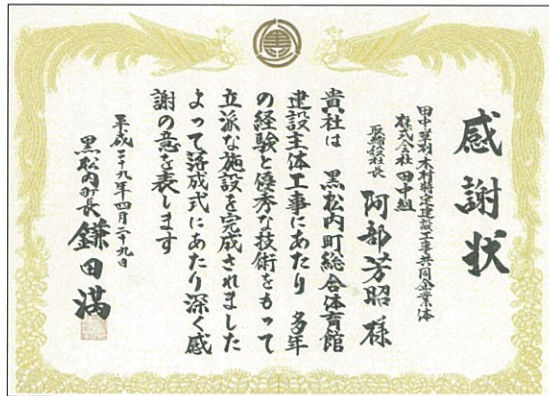 感謝状
田中・草刈・木村特定建設工事共同企業体
株式会社 田中組
取締役社長 阿部芳昭 様
貴社は 黒松内町総合体育館
建設主体工事にあたり 多年
の経験と優秀な技術をもって
立派な施設を完成されました
よって落成式にあたり深く感
謝の意を表します
平成二十九年四月二十九日
黒松内町長 鎌田満